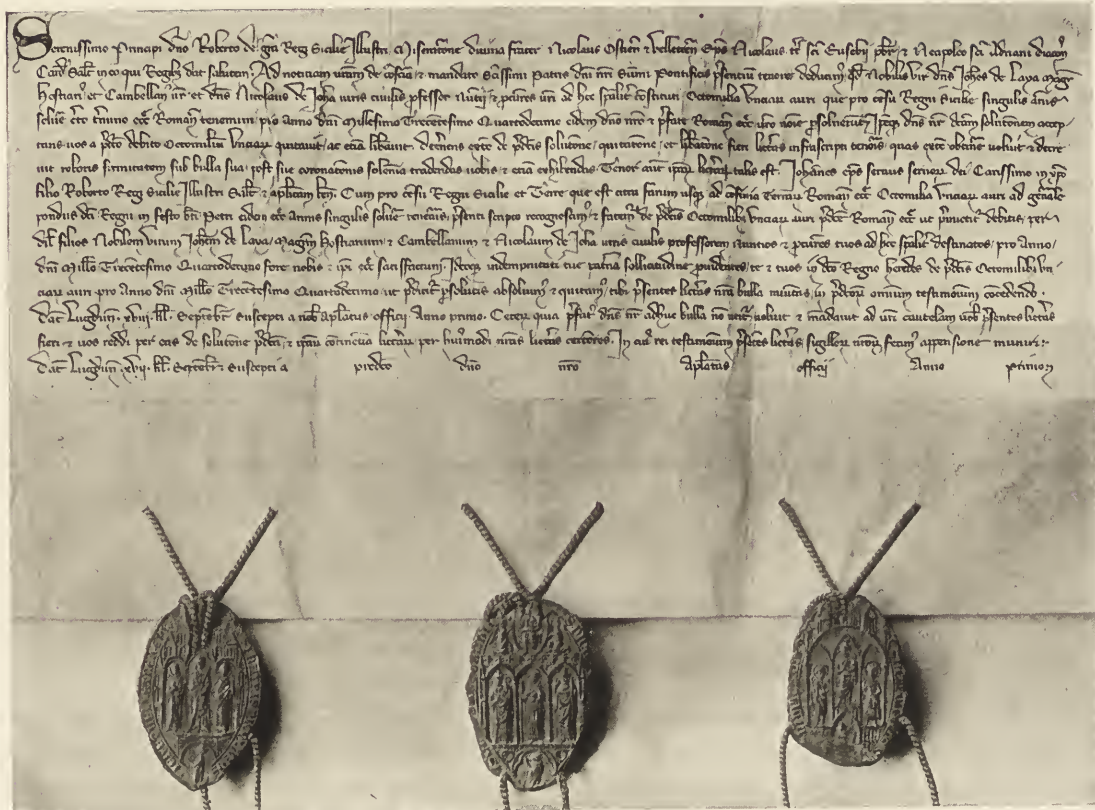 Serenissimo Principi dno Roberto dei gra Regi Sicilie Illustri Miseratione divina frater Nicolaus Ostien et Velletren Eps Nicolaus tt sci Eusebij pbr et Neapoleo sci Adriani diacon
Card Salt in eo qui Regibus dat salutem Ad notitiam vram de conscia et mandato Sanctissimi Patris dni nri Summi Pontificis psentium tenore deducimus qd Nobilis vir dns Johes de Laya Magr
Hostiari et Cambellan vr et dns Nicolaus de Joha iuris civilis pfessor Nuntij et pcures vri ad hec spalit constituti Octomilia Unciar auri que pro censu Regni Sicilie singulis annis
solvere certo termino eccl Romane tenemini pro anno dni Millesimo Trecentesimo Quartodecimo eidem dno nro et pfate Romane eccl vro noie psolverunt Ipseq dns nr dcam solutionem accep
tans vos a pdcto debito Octomilium Unciar auri quitavit ac etia liberavit decernens certe de pdcis solutione quitatione et liberatione fieri litteras infrascripti tenoris quas certe obtinere voluit et decre
vit roboris firmitatem sub bulla sua post sue coronationis solenia tradendas vobis et etia exhibendas Tenor aut ipar litterar talis est Johannes eps servus servor dei Carissimo in xpo
filio Roberto Regi Sicilie Illustri Salt et aplicam ben Cum pro censu Regni Sicilie et Terre que est citra farum usq ad confinia Terrar Romane eccl Octomilia Unciar auri ad generale
pondus dci Regni in festo bti Petri eidem eccl annis singulis solvere tenearis psenti scripto recognoscim et fatemur de pdcis Octomilibus Unciar auri pdce Romane eccl ut pmictitur debitis per
dil filios Nobilem virum Johem de Laya Magrm Hostiarium et Cambellanum et Nicolaum de Joha iuris civilis professorem Nuntios et pcures tuos ad hec spalit destinatos pro anno
dni Millo Trecentesimo Quartodecimo fore nobis et ipi eccl satisfactum Ideoq indempnitati tue paterna sollicitudine providentes te et tuos in dco Regno heredes de pdcis Octomilibus Un
ciar auri pro Anno dni Millo Trecentesimo Quartodecimo ut pdicitur psolutis absolvim et quitam tibi psentes litteras nra bulla munitas in pdcor omnium testimonium concedendo
Dat Lugdun xviii kl Septembr Suscepti a nob aplatus officij anno primo Ceter quia pfat dns nr adhuc bulla non utit voluit et mandavit ad vri cautelam vob psentes litteras
fieri et vos reddi per eas de solutione pdca et ipar continentia litterar per huiusmodi nras litteras certiores In cui rei testimonium psentes litteras sigillor nror fecim appensione muniri
Dat Lugdun xvii kl Septembr Suscepti a predco dno nro Aplatus officij Anno primo